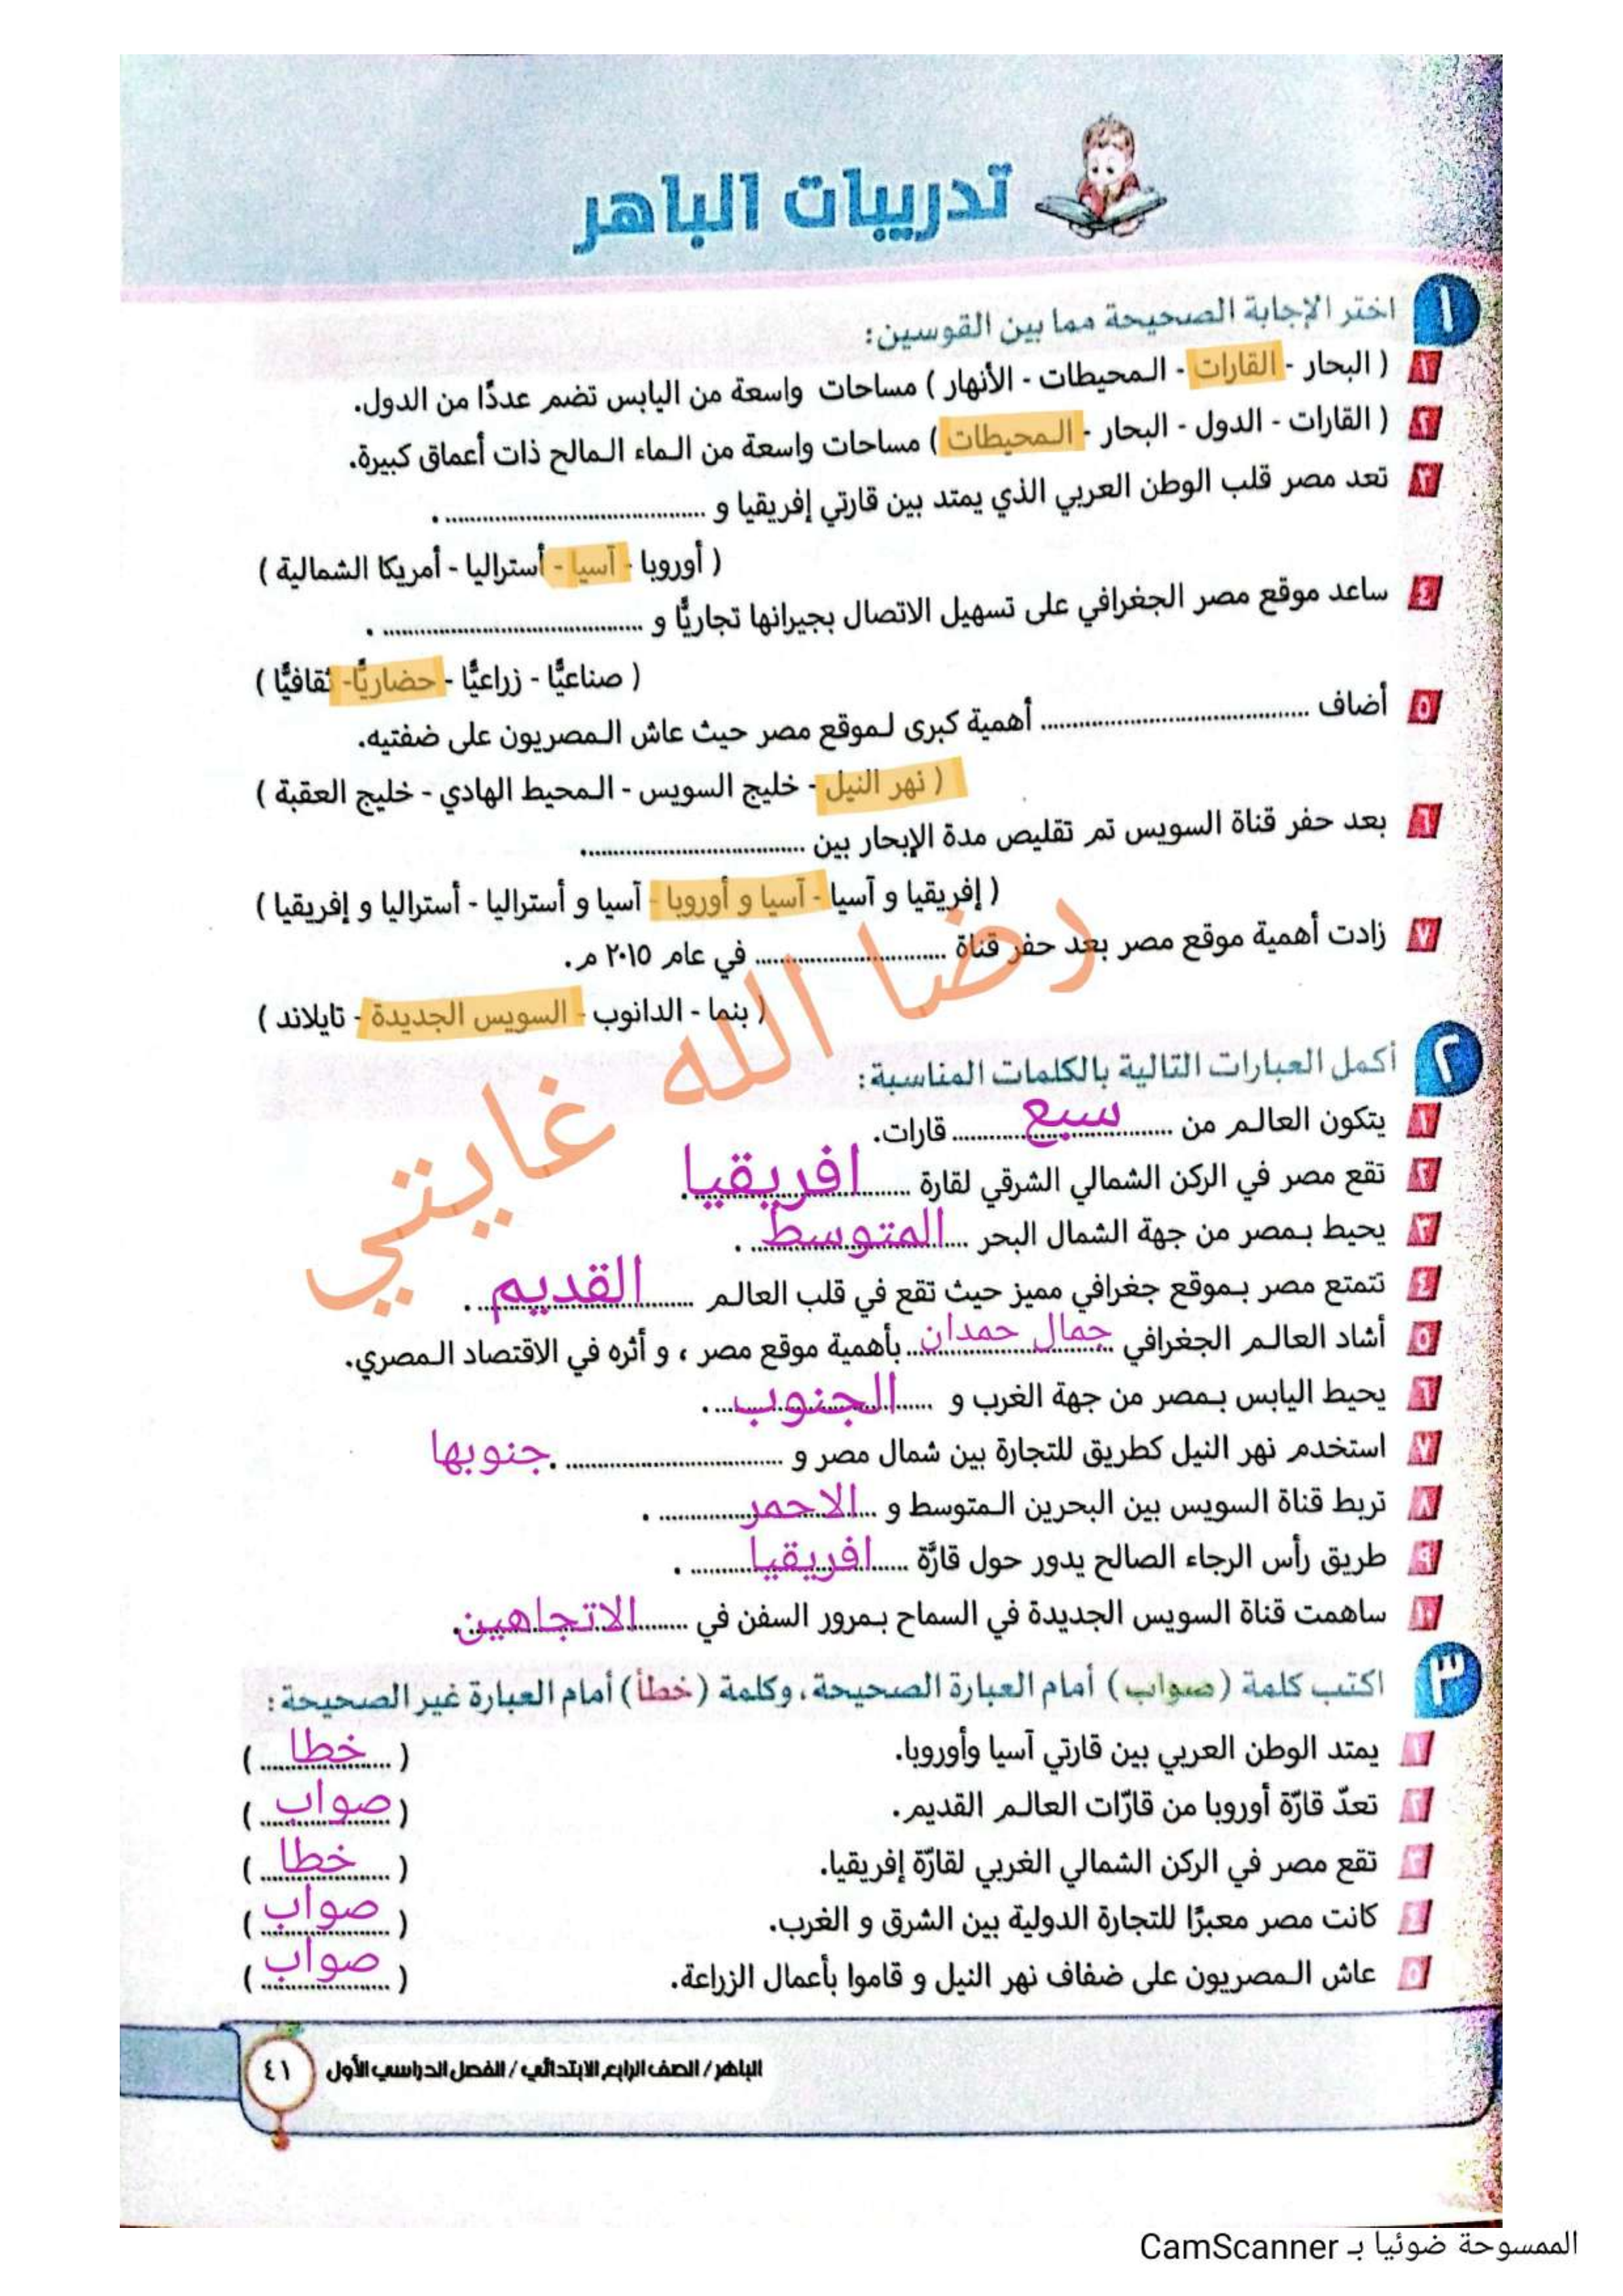 تدريبات الباهر
١ اختر الإجابة الصحيحة مما بين القوسين:
١ ( البحار - القارات - المحيطات - الأنهار ) مساحات واسعة من اليابس تضم عددًا من الدول.
٢ ( القارات - الدول - البحار - المحيطات ) مساحات واسعة من الماء المالح ذات أعماق كبيرة.
٣ تعد مصر قلب الوطن العربي الذي يمتد بين قارتي إفريقيا و ........................ .
( أوروبا - آسيا - أستراليا - أمريكا الشمالية )
٤ ساعد موقع مصر الجغرافي على تسهيل الاتصال بجيرانها تجاريًّا و ........................ .
( صناعيًّا - زراعيًّا - حضاريًّا - ثقافيًّا )
٥ أضاف ........................ أهمية كبرى لموقع مصر حيث عاش المصريون على ضفتيه.
( نهر النيل - خليج السويس - المحيط الهادي - خليج العقبة )
٦ بعد حفر قناة السويس تم تقليص مدة الإبحار بين ........................
( إفريقيا و آسيا - آسيا و أوروبا - آسيا و أستراليا - أستراليا و إفريقيا )
٧ زادت أهمية موقع مصر بعد حفر قناة ........................ في عام ٢٠١٥ م.
( بنما - الدانوب - السويس الجديدة - تايلاند )
رضا الله غايتي
٢ أكمل العبارات التالية بالكلمات المناسبة:
١ يتكون العالم من سبع قارات.
٢ تقع مصر في الركن الشمالي الشرقي لقارة افريقيا.
٣ يحيط بمصر من جهة الشمال البحر المتوسط .
٤ تتمتع مصر بموقع جغرافي مميز حيث تقع في قلب العالم القديم .
٥ أشاد العالم الجغرافي جمال حمدان بأهمية موقع مصر ، و أثره في الاقتصاد المصري.
٦ يحيط اليابس بمصر من جهة الغرب و الجنوب .
٧ استخدم نهر النيل كطريق للتجارة بين شمال مصر و ........................ . جنوبها
٨ تربط قناة السويس بين البحرين المتوسط و الاحمر .
٩ طريق رأس الرجاء الصالح يدور حول قارَّة افريقيا .
١٠ ساهمت قناة السويس الجديدة في السماح بمرور السفن في الاتجاهين .
٣ اكتب كلمة (صواب) أمام العبارة الصحيحة، وكلمة (خطأ) أمام العبارة غير الصحيحة:
١ يمتد الوطن العربي بين قارتي آسيا وأوروبا. ( خطا )
٢ تعدّ قارّة أوروبا من قارّات العالم القديم. ( صواب )
٣ تقع مصر في الركن الشمالي الغربي لقارّة إفريقيا. ( خطا )
٤ كانت مصر معبرًا للتجارة الدولية بين الشرق و الغرب. ( صواب )
٥ عاش المصريون على ضفاف نهر النيل و قاموا بأعمال الزراعة. ( صواب )
الباهر/ الصف الرابع الابتدائي / الفصل الدراسي الأول ٤١
الممسوحة ضوئيا بـ CamScanner